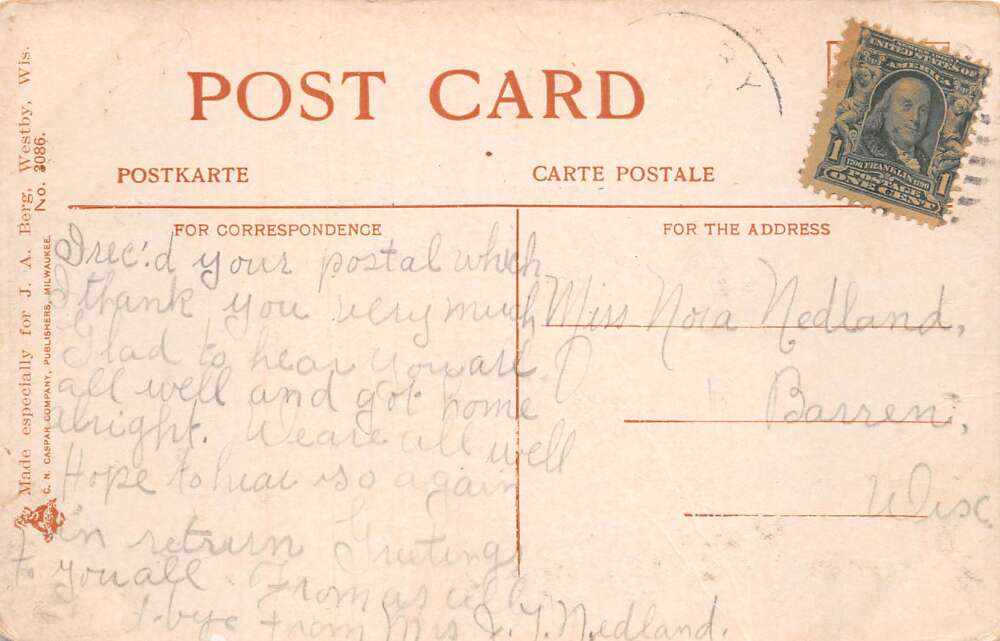 POST CARD
POSTKARTE
CARTE POSTALE
FOR CORRESPONDENCE
FOR THE ADDRESS
Made especially for J. A. Berg, Westby, Wis.
No. 3086.
C. N. CASPAR COMPANY, PUBLISHERS, MILWAUKEE.
UNITED STATES OF
AMERICA
1 1706 FRANKLIN 1790 1
POSTAGE
ONE CENT
I rec'd your postal which
I thank you very much
Glad to hear you are
all well and got home
alright. We are all well
Hope to hear so again
in retrurn Greetings
To you all From as all
bye From Mrs J. T. Nedland.
Miss Nora Nedland,
Barren,
Wisc